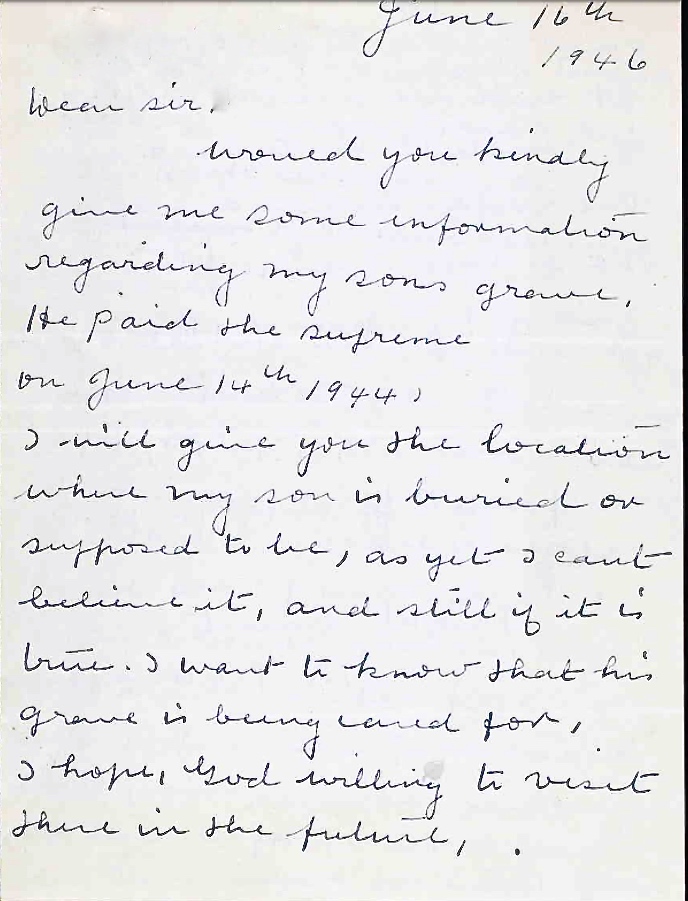 June 16th
1946
Dear sir.
Would you kindly
give me some information
regarding my sons grave,
He paid the supreme
on June 14th 1944,
I will give you the location
where my son is buried or
supposed to be, as yet I cant
believe it, and still if it is
true. I want to know that his
grave is being cared for,
I hope, God willing to visit
there in the future,.